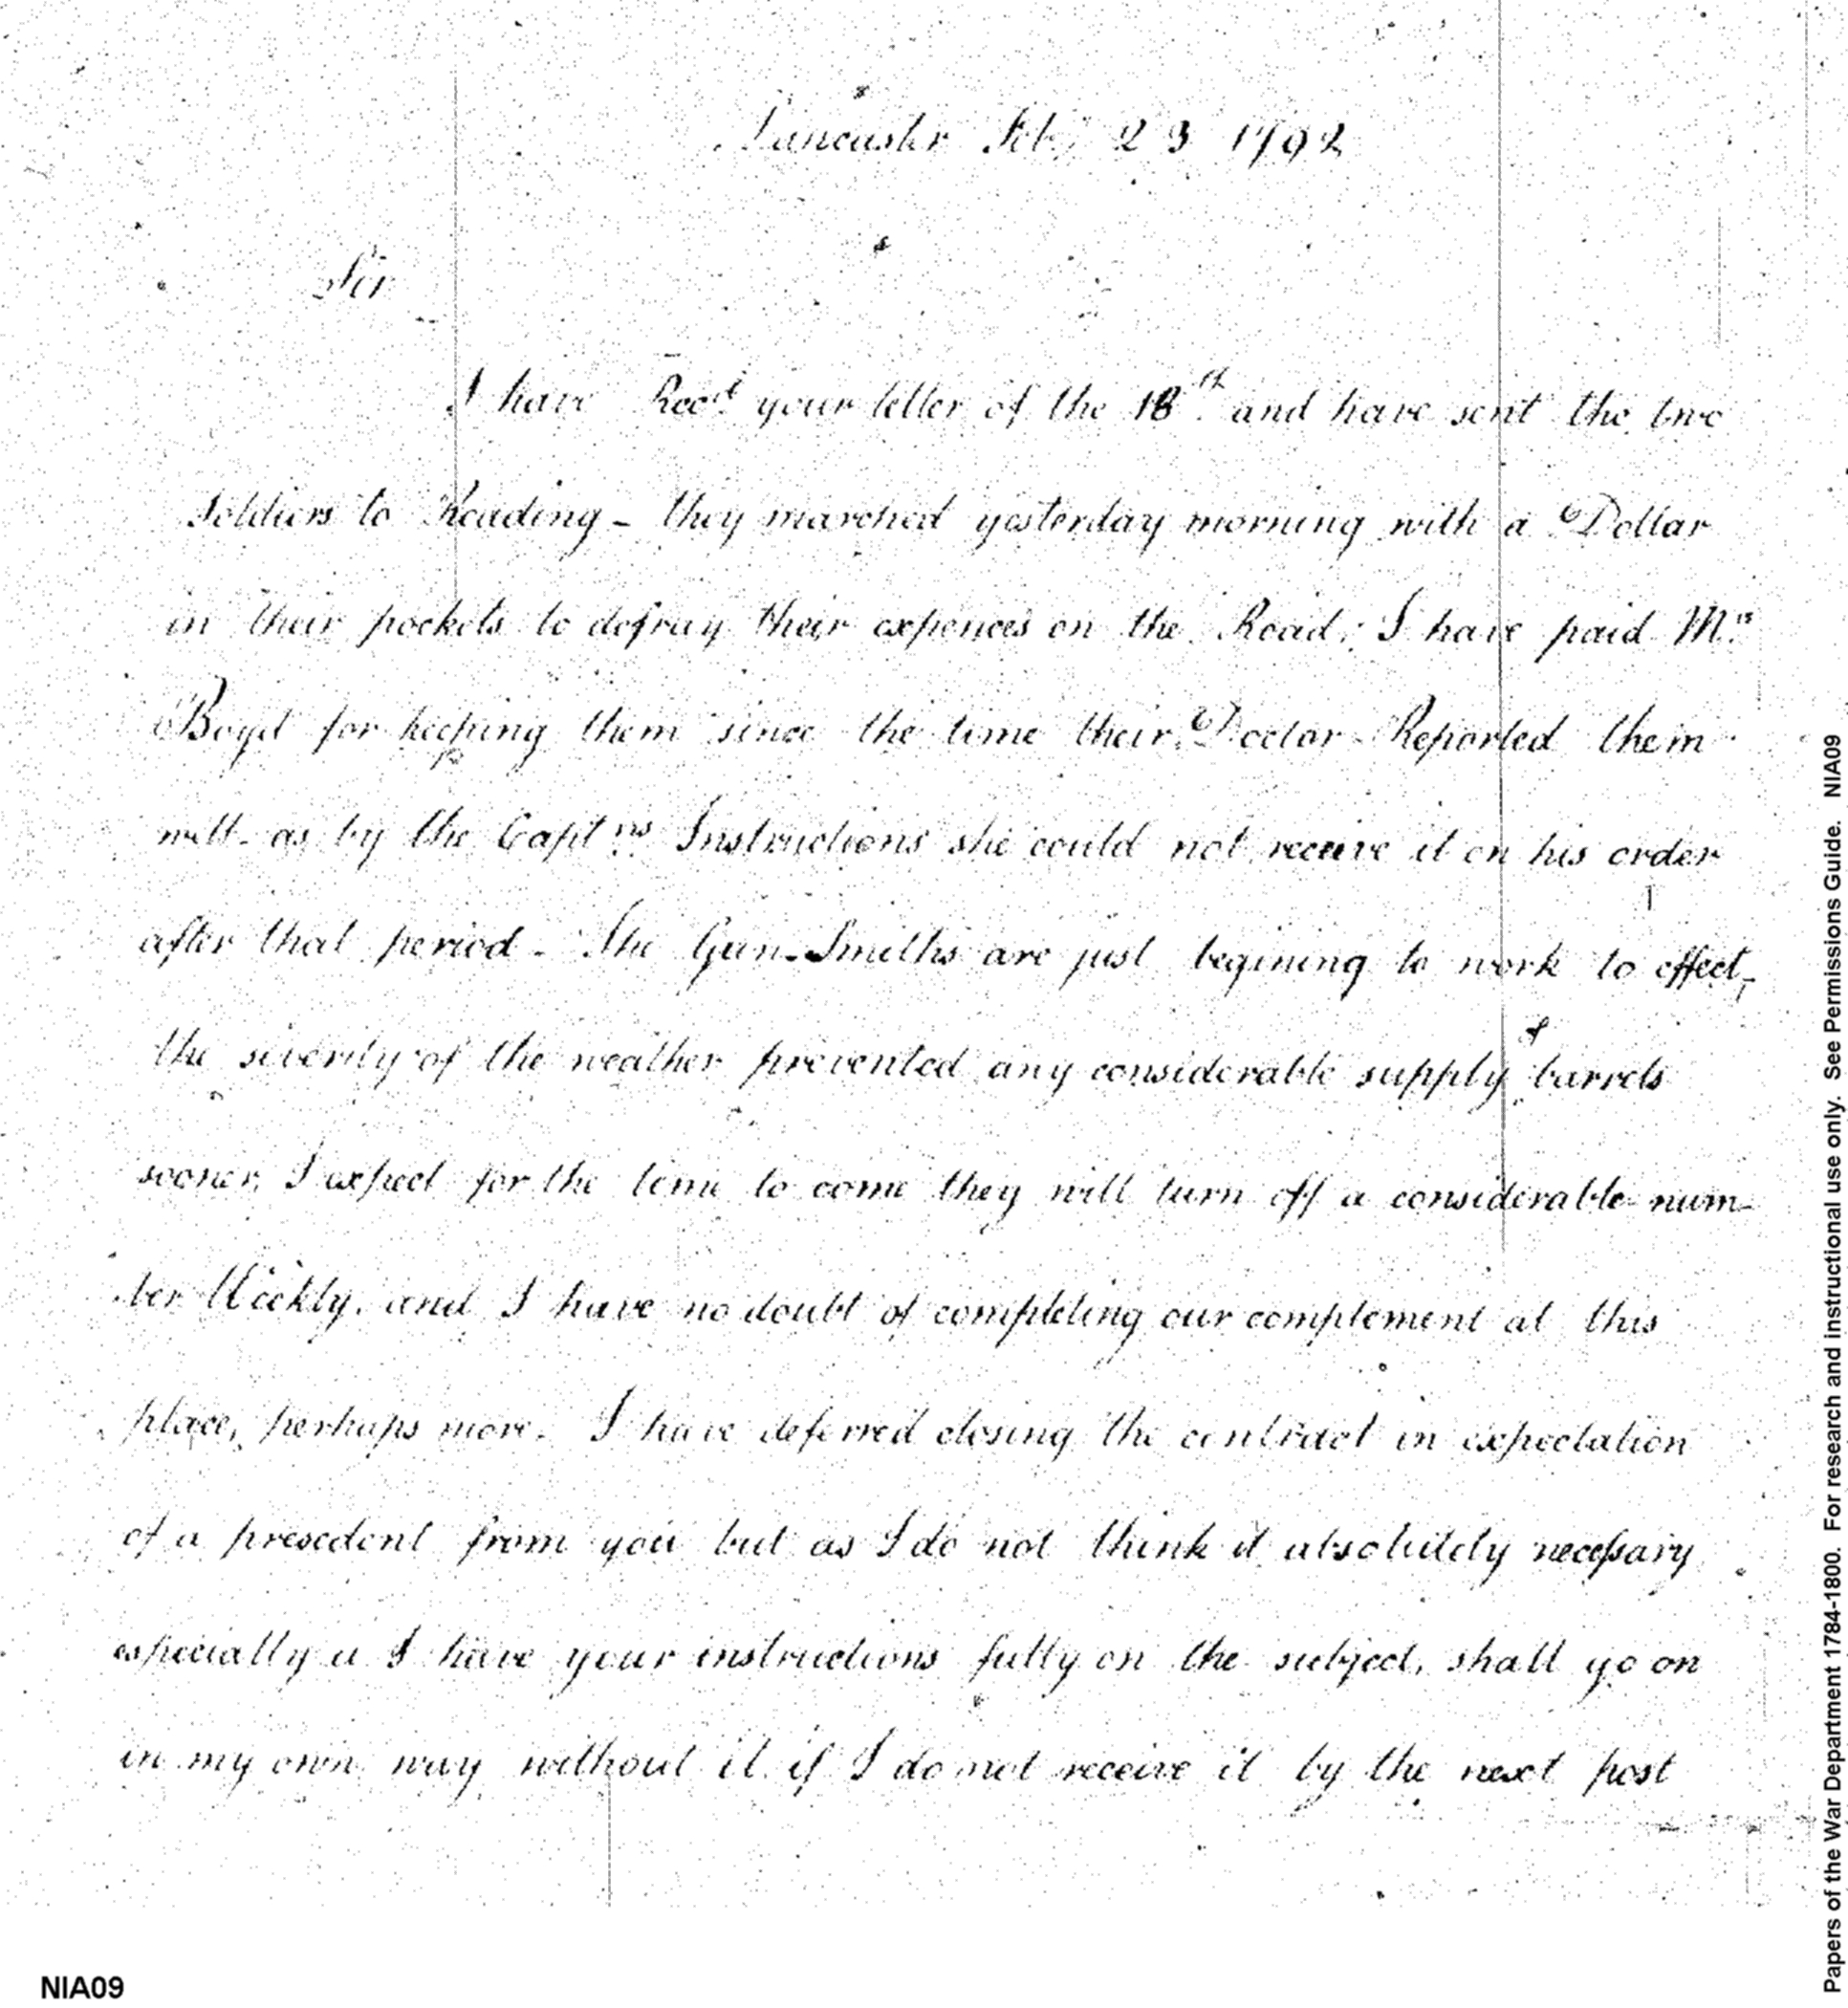 Lancaster Feby 23 1792
Sir
I have Recd your letter of the 18th and have sent the two
Soldiers to Reading - they marched yesterday morning with a Dollar
in their pockets to defray their expences on the Road; I have paid Mrs
Boyd for keeping them since the time their Doctor Reported them
well - as by the Captns Instructions she could not receive it on his order
after that period - The Gun-Smiths are just begining to work to effect,
the severity of the weather prevented any considerable supply of barrels
sooner, I expect for the time to come they will turn off a considerable num-
ber Weekly, and I have no doubt of completing our complement at this
place, perhaps more. I have deferred closing the contract in expectation
of a presedent from you but as I do not think it absolutely necessary
especially a I have your instructions fully on the subject, shall go on
in my own way without it if I do not receive it by the next post
NIA09
Papers of the War Department 1784-1800. For research and instructional use only. See Permissions Guide. NIA09